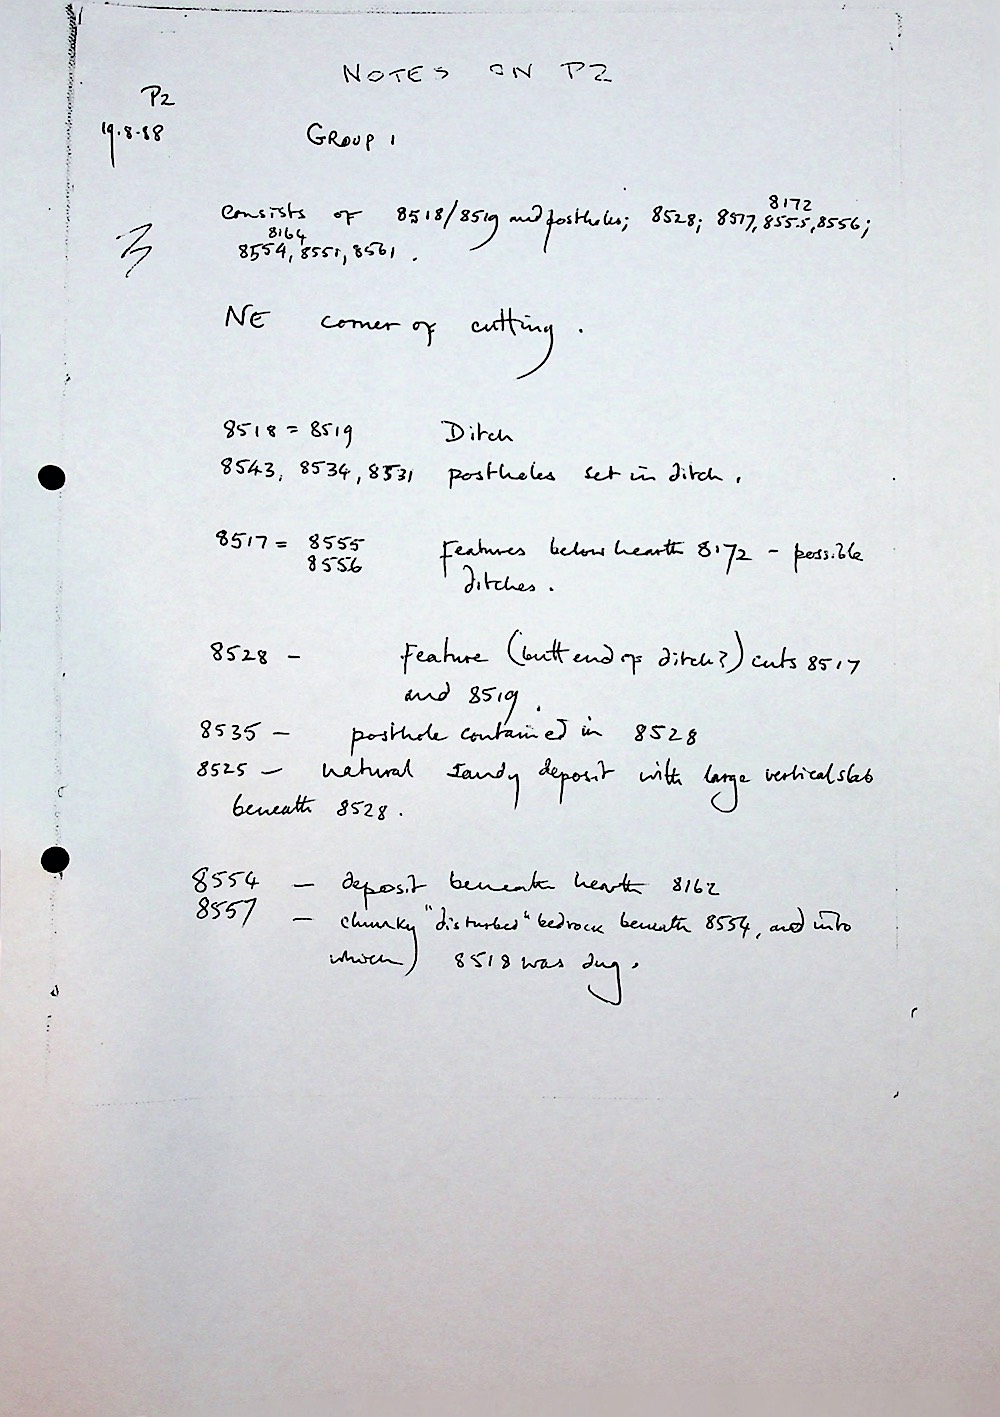 NOTES ON P2
P2
19.8.88
GROUP 1
8172
Consists of 8518/8519 and postholes; 8528; 8517, 8555, 8556;
8164
8554, 8551, 8561.
3
NE corner of cutting.
8518 = 8519 Ditch
8543, 8534, 8531 postholes set in ditch.
8517 = 8555 Features below hearth 8172 - possible
8556 ditches.
8528 - Feature (butt end of ditch?) cuts 8517
and 8519.
8535 - posthole contained in 8528
8525 - natural sandy deposit with large vertical slab
beneath 8528.
8554 - deposit beneath hearth 8162
8557 - chunky "disturbed" bedrock beneath 8554, and into
which 8518 was dug.